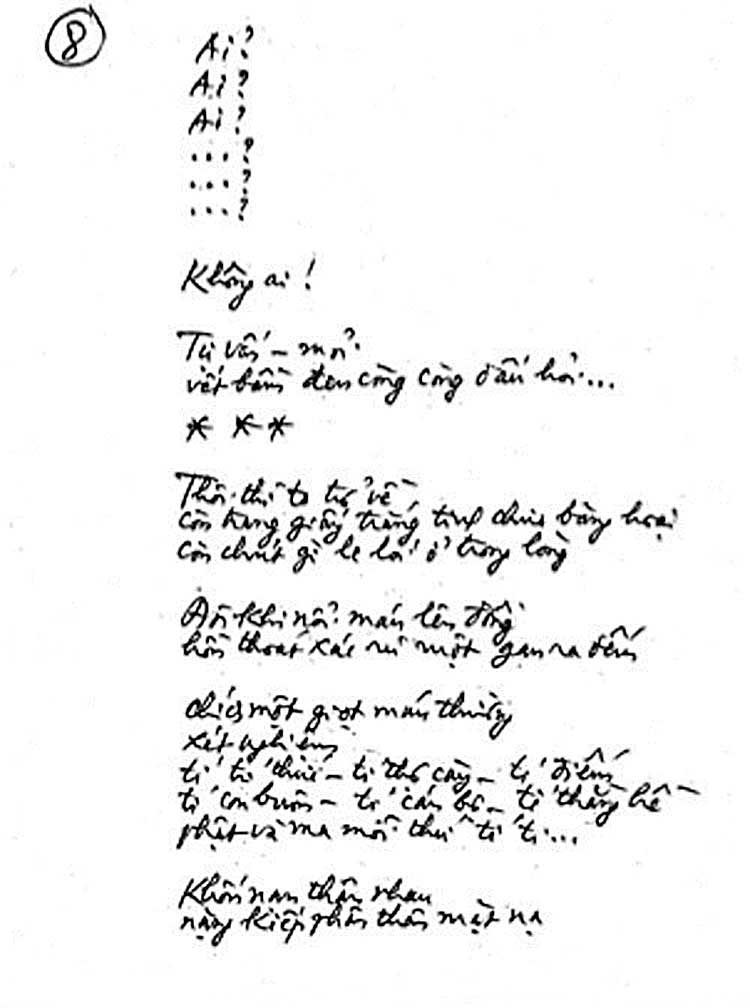 8
Ai?
Ai?
Ai?
...?
...?
...?
Không ai!
Tự vấn – mỏi
vết bẩm đen còng còng dấu hỏi...
* * *
Thôi thì ta trở về
còn trang giấy trắng tinh chưa băng hoại
còn chút gì le lói ở trong lòng
Đôi khi nổi máu lên đồng
hồn thoát xác rũ ruột gan ra đếm
chích một giọt máu thường
xét nghiệm
tí trí thức – tí thợ cày – tí điếm
tí con buôn – tí cán bộ – tí thằng hề
phật và ma mỗi thứ tí ti...
Khốn nạn thân nhau
nặng kiếp phân thân mặt nạ